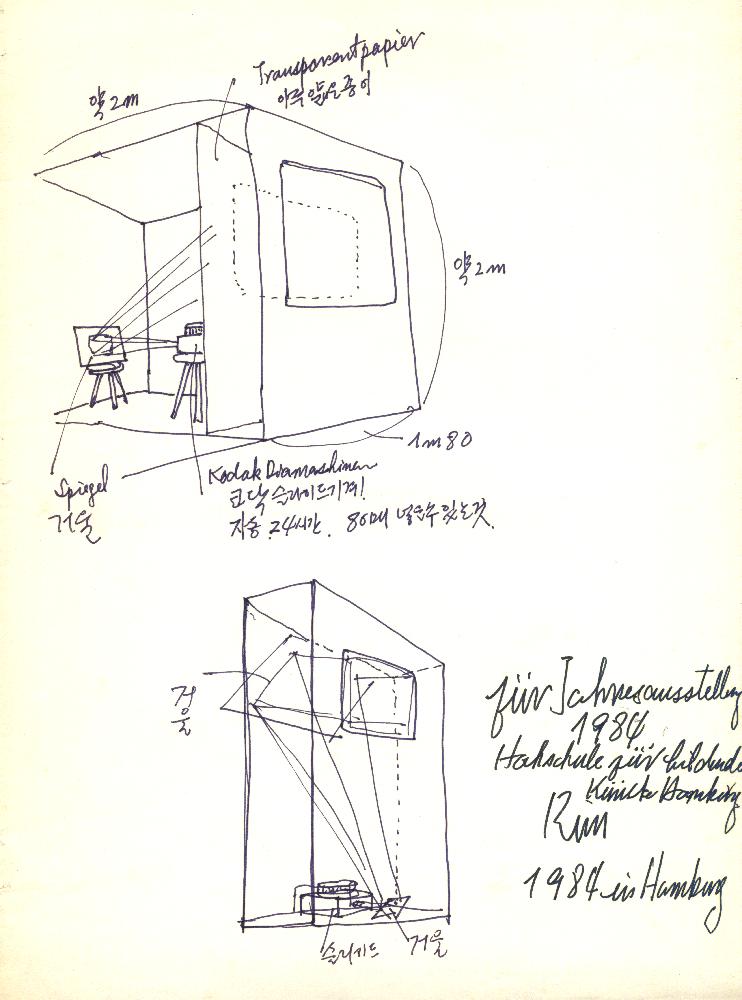 Transparentpapier
아주 얇은 종이
약 2m
약 2m
1m80
Spiegel
거울
Kodak Diamaschinen
코닥 슬라이드기계!
자동 24시간. 80매 넣을수 있는것.
거울
für Jahresausstellung
1984
Hochschule für bildende
Künste Hamburg
1984 in Hamburg
슬라이드
거울